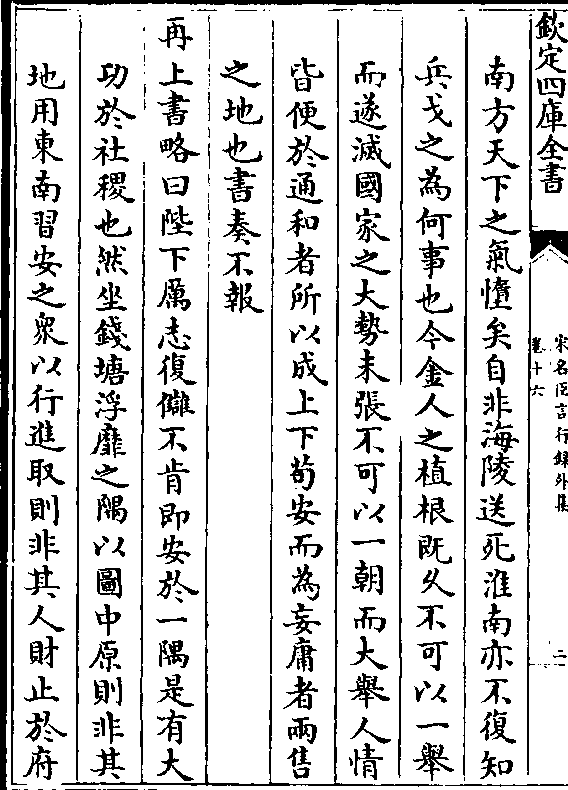 欽定四庫全書
宋名臣言行録外集
卷十六
二
南方天下之氣惰矣自非海陵送死淮南亦不復知
兵戈之為何事也今金人之植根既久不可以一舉
而遂滅國家之大勢未張不可以一朝而大舉人情
皆便於通和者所以成上下苟安而為妄庸者兩售
之地也書奏不報
再上書略曰陛下厲志復讎不肯即安於一隅是有大
功於社稷也然坐錢塘浮靡之隅以圖中原則非其
地用東南習安之衆以行進取則非其人財止於府